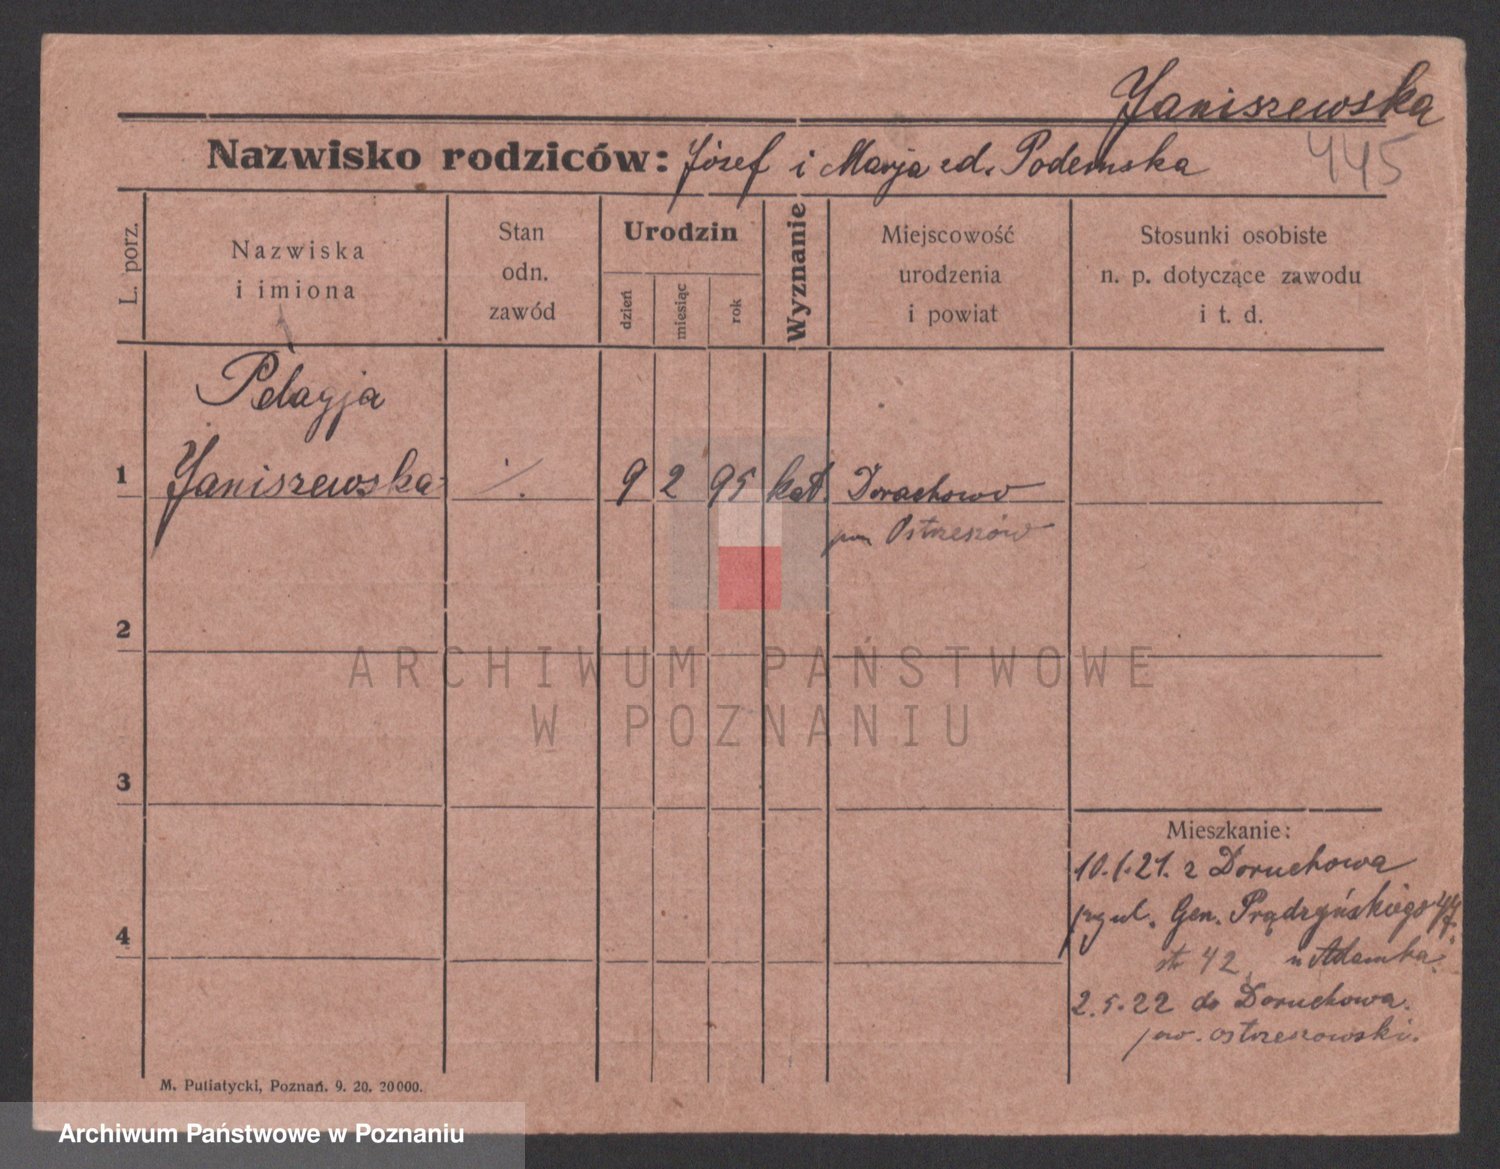 Janiszewska
Nazwisko rodziców: Józef i Marja zd. Podemska
445
L. porz.
Nazwiska
i imiona
Stan
odn.
zawód
Urodzin
dzień
miesiąc
rok
Wyznanie
Miejscowość
urodzenia
i powiat
Stosunki osobiste
n. p. dotyczące zawodu
i t. d.
Pelagja
1 Janiszewska ·/. 9 2 95 kat. Dorachowo
pow Ostrzeszów
2
3
4
Mieszkanie:
10.1.21. z Doruchowa
przy ul. Gen. Prądzyńskiego 44
42 u Adamka
2.5.22 do Doruchowa.
pow. ostrzeszowski.
M. Putiatycki, Poznań. 9. 20. 20000.
ARCHIWUM PAŃSTWOWE
W POZNANIU
Archiwum Państwowe w Poznaniu